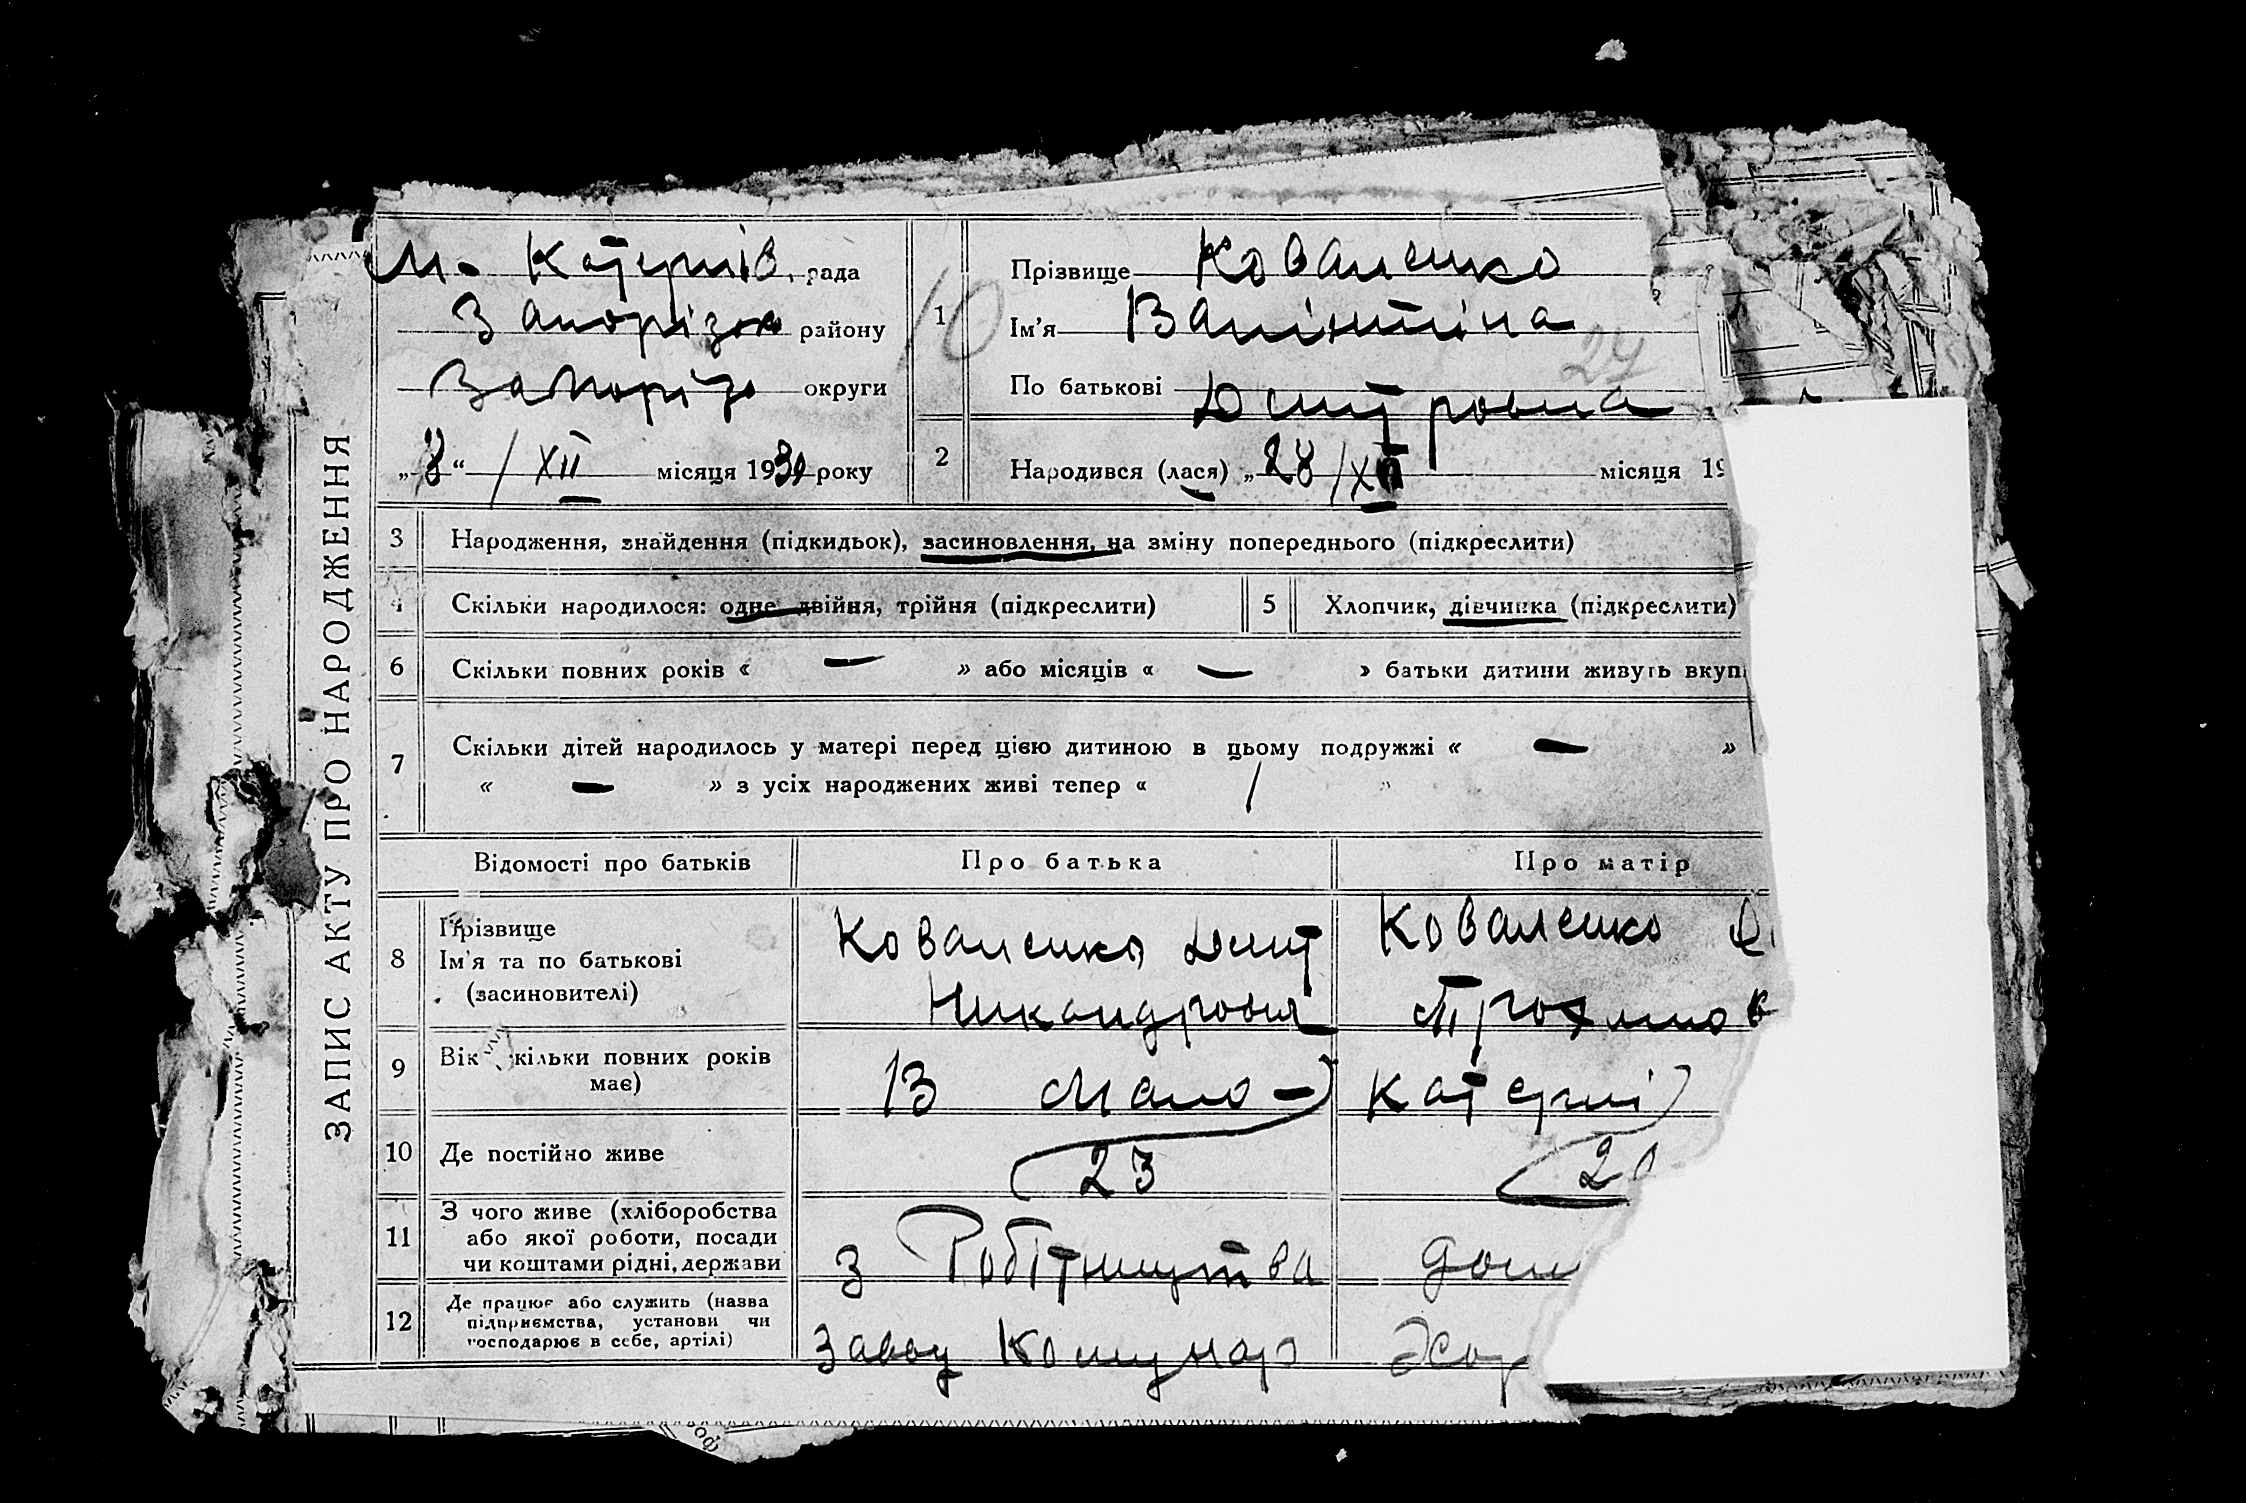 ЗАПИС АКТУ ПРО НАРОДЖЕННЯ
М. Катернів. рада
Запорізьк району
Запорізь округи
„3“ / XII місяця 1930 року
10
1 Прізвище Коваленко
Ім'я Валінтіна
24
По батькові Дмитровна
2 Народився (лася) „28/XII місяця 19
3 Народження, знайдення (підкидьок), засиновлення, на зміну попереднього (підкреслити)
4 Скільки народилося: одне двійня, трійня (підкреслити)
5 Хлопчик, дівчинка (підкреслити)
6 Скільки повних років « — » або місяців « — » батьки дитини живуть вкупі
7 Скільки дітей народилось у матері перед цією дитиною в цьому подружжі « — »
« — » з усіх народжених живі тепер « / »
Відомості про батьків Про батька Про матір
8 Прізвище
Ім'я та по батькові
(засиновителі)
Коваленко Дмит
Никандрович
Коваленко
9 Вік скільки повних років
має)
В Мало - Катерні
10 Де постійно живе
23
2
11 З чого живе (хліборобства
або якої роботи, посади
чи коштами рідні, держави
З Робітництва
дом
12 Де працює або служить (назва
підприємства, установи чи
господарює в себе, артілі)
Завод Комунар